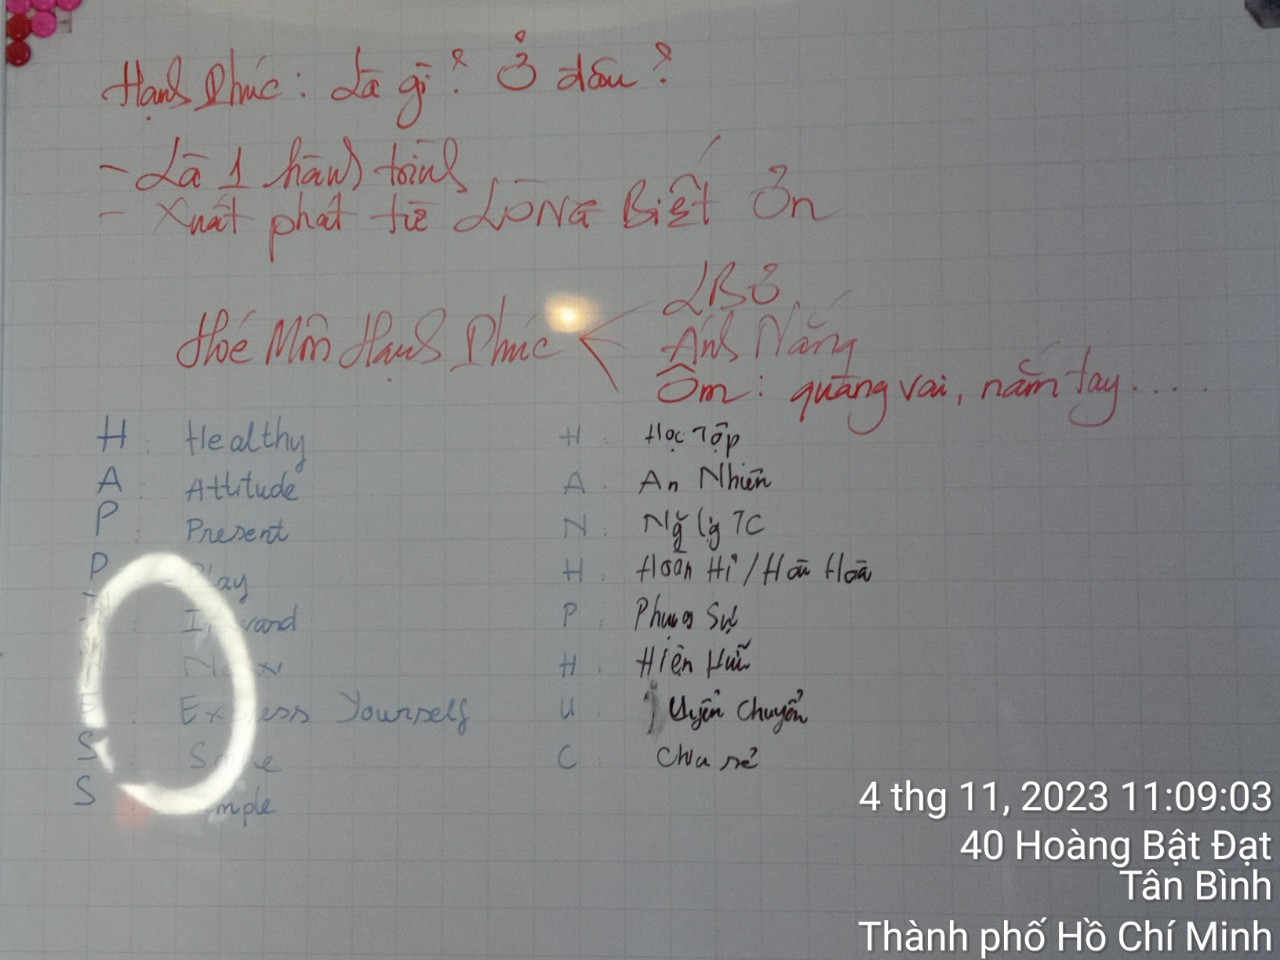 Hạnh Phúc: Là gì? Ở đâu?
- Là 1 hành trình
- Xuất phát từ LÒNG Biết Ơn
Hoé Môn Hạnh Phúc < LBƠ
Ánh Nắng
Ôm: quàng vai, nắm tay....
H: Healthy
A: Attitude
P: Present
P Play
: Inward
New
Express Yourself
S Smile
S Simple
H: Học Tập
A: An Nhiên
N: Ng~ lg TC
H: Hoan Hỉ / Hài Hoà
P: Phụng Sự
H: Hiện Hữu
U: Uyển Chuyển
C: Chia sẻ
4 thg 11, 2023 11:09:03
40 Hoàng Bật Đạt
Tân Bình
Thành phố Hồ Chí Minh